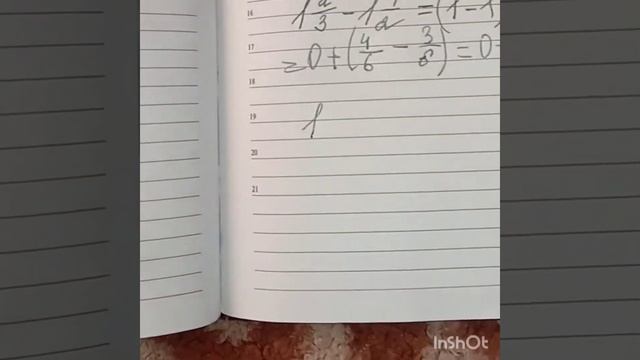 16 1 2/3 - 1 1/2 = (1 - 1
17 = 0 + (4/6 - 3/6) = 0
18
19 1
20
21
InShOt